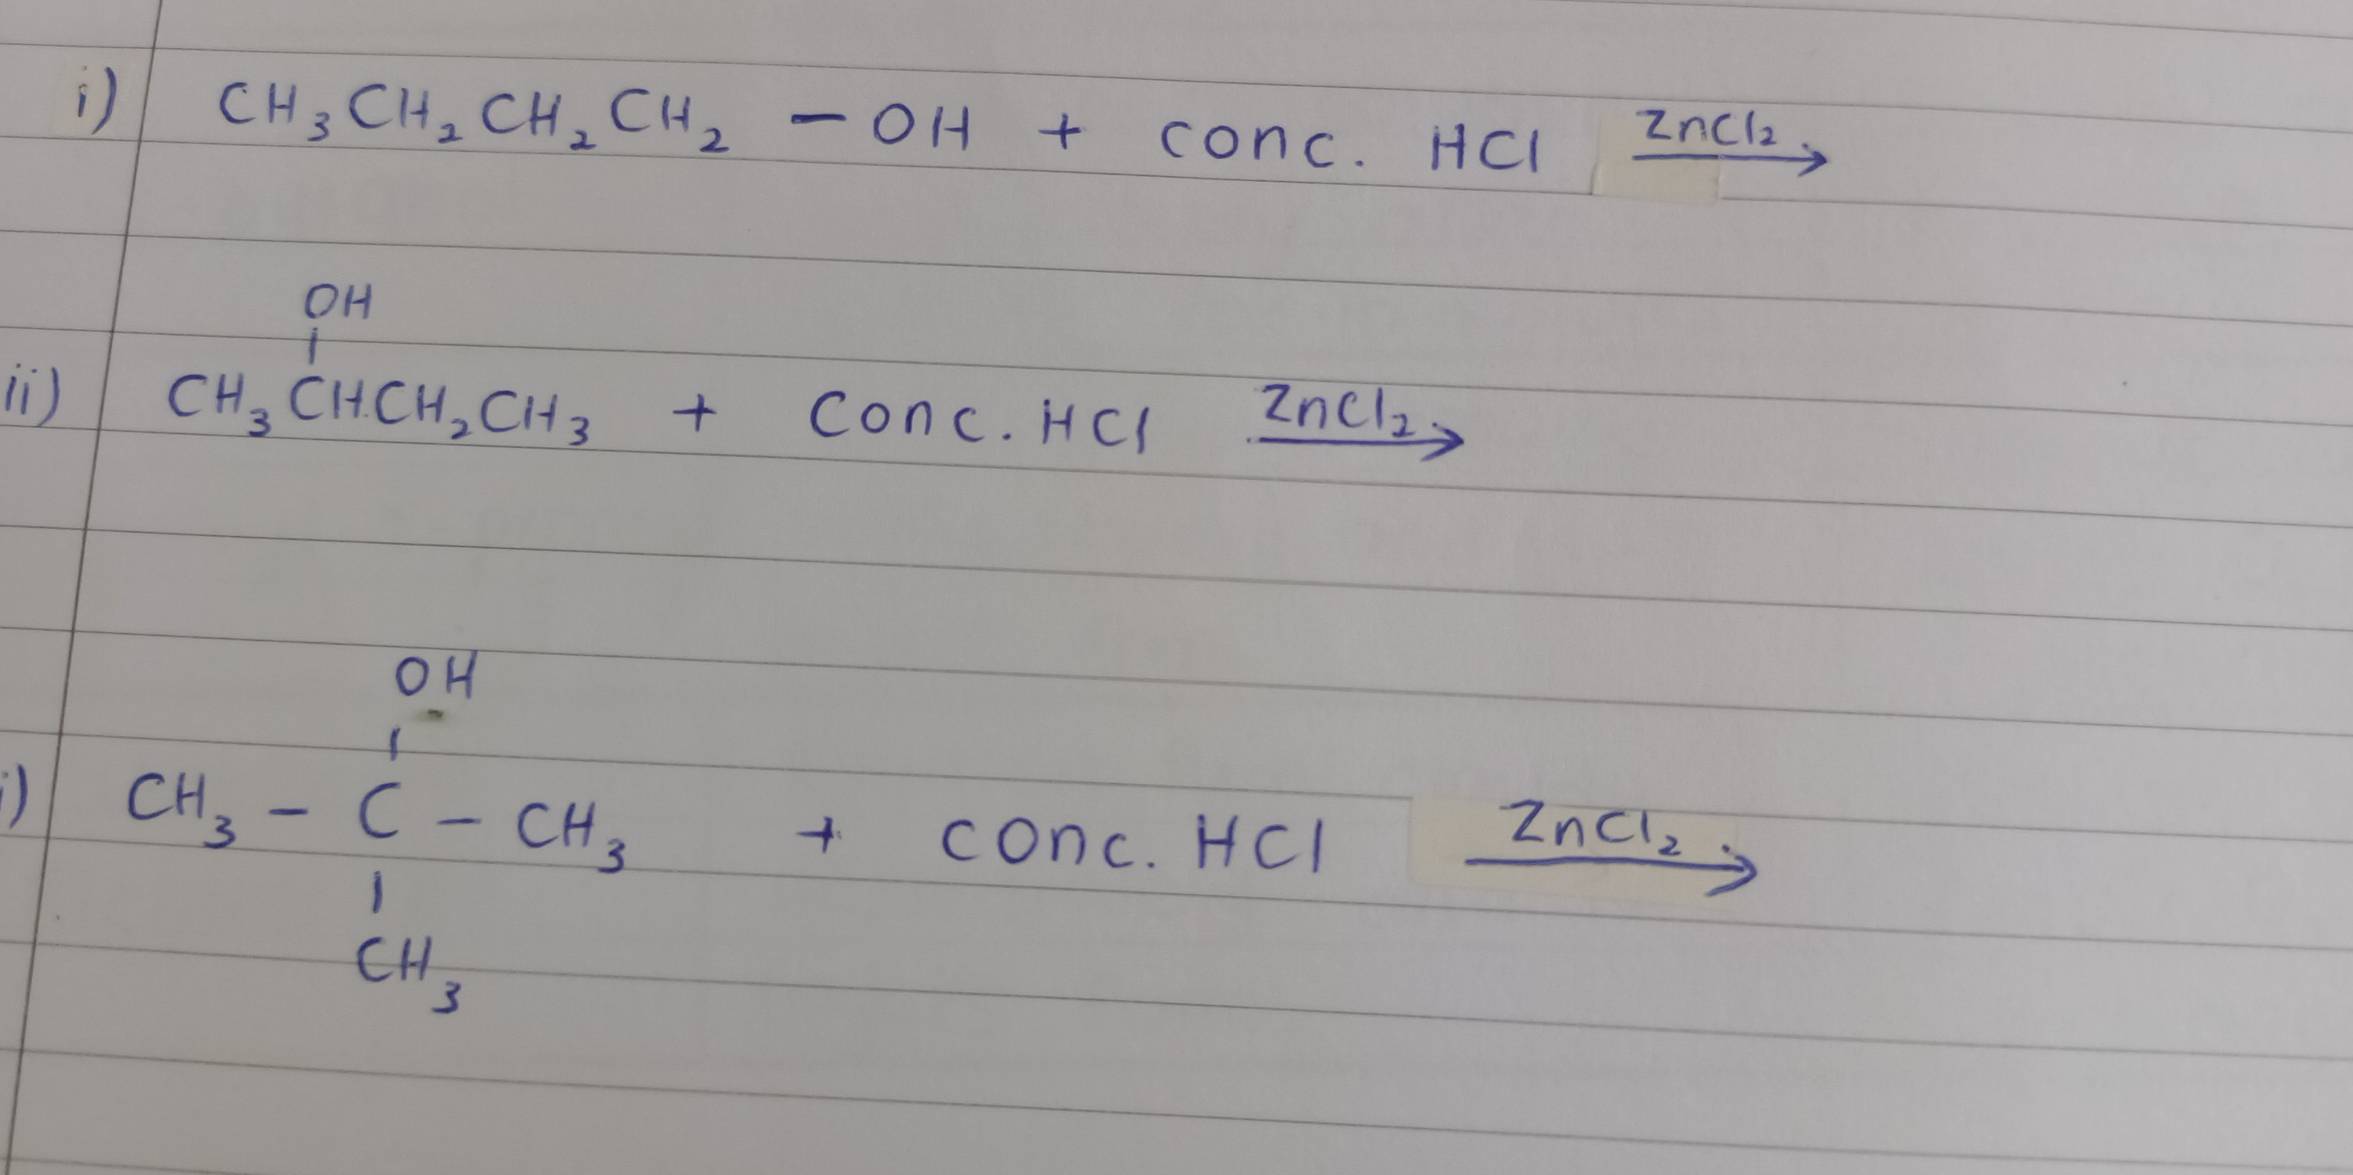 i) CH₃CH₂CH₂CH₂ – OH + conc. HCl ZnCl₂ →
OH
ii) CH₃CHCH₂CH₃ + Conc. HCl ZnCl₂ →
OH
i) CH₃ – C – CH₃ + conc. HCl ZnCl₂ →
CH₃